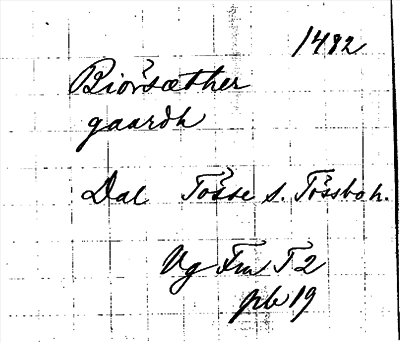 1482
Biörsæther
gaardh
Dal Tösse s. Tössbo h.
Vg Fru T2
pb 19